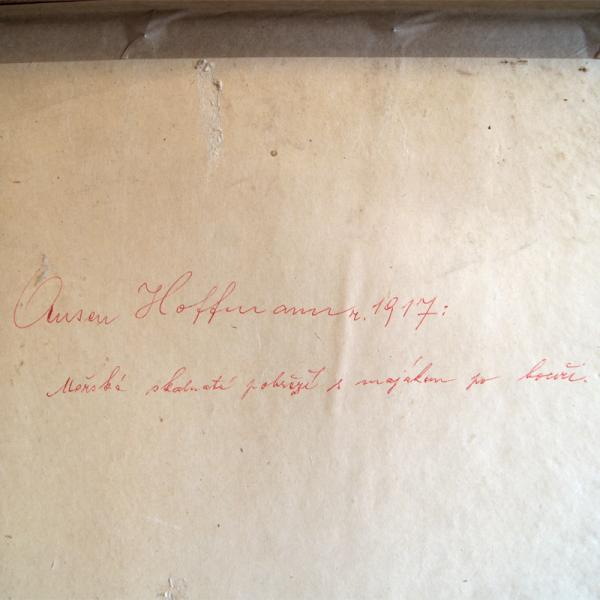 Ausen Hoffmann r. 1917:
Mořská skalnaté pobřeží s majákem po bouři.